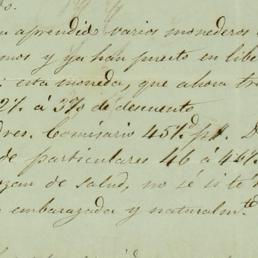 s.
aprendido varios monederos
mos y ya han puesto en libe
esta moneda, que ahora tr
2% á 3% de descuento
dres. Comisario 45 1/2 D
de particulares 46 á 46 1/2
gan de salud, no sé si te d
embarazada y naturalmte